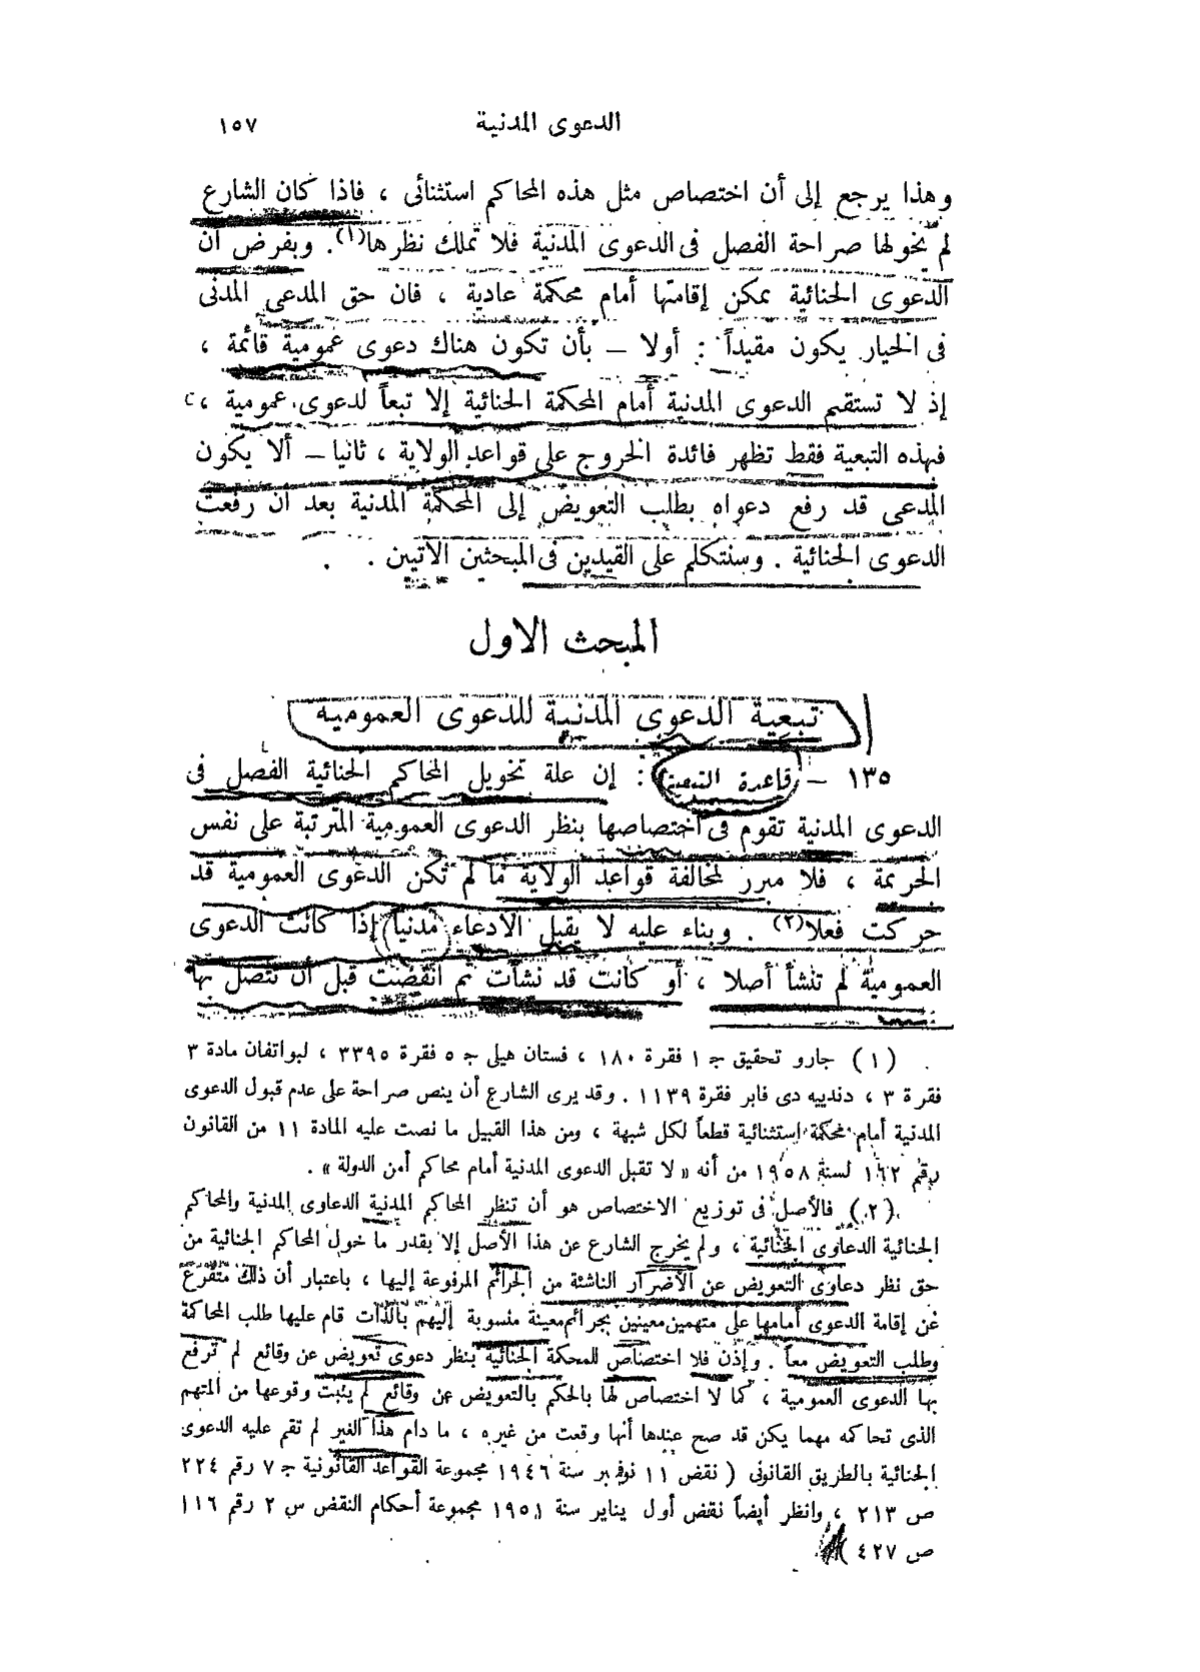 الدعوى المدنية ١٥٧
وهذا يرجع إلى أن اختصاص مثل هذه المحاكم استثنائى ، فاذا كان الشارع
لم يخولها صراحة الفصل فى الدعوى المدنية فلا تملك نظرها(١). وبفرض أن
الدعوى الجنائية يمكن إقامتها أمام محكمة عادية ، فان حق المدعى المدنى
فى الخيار يكون مقيداً : أولا – بأن تكون هناك دعوى عمومية قائمة ،
إذ لا تستقيم الدعوى المدنية أمام المحكمة الجنائية إلا تبعاً لدعوى عمومية ،
فبهذه التبعية فقط تظهر فائدة الخروج على قواعد الولاية ، ثانيا – ألا يكون
المدعى قد رفع دعواه بطلب التعويض إلى المحكمة المدنية بعد أن رفعت
الدعوى الجنائية . وسنتكلم على القيدين فى المبحثين الآتيين .
المبحث الاول
تبعية الدعوى المدنية للدعوى العمومية
١٣٥ – قاعدة التبعية : إن علة تخويل المحاكم الجنائية الفصل فى
الدعوى المدنية تقوم فى اختصاصها بنظر الدعوى العمومية المترتبة على نفس
الجريمة ، فلا مبرر لمخالفة قواعد الولاية ما لم تكن الدعوى العمومية قد
حركت فعلا(٢) . وبناء عليه لا يقبل الادعاء مدنياً إذا كانت الدعوى
العمومية لم تنشأ أصلا ، أو كانت قد نشأت ثم انقضت قبل أن تتصل بها
(١) جارو تحقيق ج ١ فقرة ١٨٠ ، فستان هيلى ج ٥ فقرة ٣٣٩٥ ، لبواتفان مادة ٣
فقرة ٣ ، دندييه دى فابر فقرة ١١٣٩ . وقد يرى الشارع أن ينص صراحة على عدم قبول الدعوى
المدنية أمام محكمة استثنائية قطعاً لكل شبهة ، ومن هذا القبيل ما نصت عليه المادة ١١ من القانون
رقم ١٦٢ لسنة ١٩٥٨ من أنه « لا تقبل الدعوى المدنية أمام محاكم أمن الدولة » .
(٢) فالأصل فى توزيع الاختصاص هو أن تنظر المحاكم المدنية الدعاوى المدنية والمحاكم
الجنائية الدعاوى الجنائية ، ولم يخرج الشارع عن هذا الأصل إلا بقدر ما خول المحاكم الجنائية من
حق نظر دعاوى التعويض عن الأضرار الناشئة من الجرائم المرفوعة إليها ، باعتبار أن ذلك متفرع
عن إقامة الدعوى أمامها على متهمين معينين بجرائم معينة منسوبة إليهم بالذات قام عليها طلب المحاكمة
وطلب التعويض معاً . وإذن فلا اختصاص للمحكمة الجنائية بنظر دعوى تعويض عن وقائع لم ترفع
بها الدعوى العمومية ، كما لا اختصاص لها بالحكم بالتعويض عن وقائع لم يثبت وقوعها من المتهم
الذى تحاكمه مهما يكن قد صح عندها أنها وقعت من غيره ، ما دام هذا الغير لم تقم عليه الدعوى
الجنائية بالطريق القانونى ( نقض ١١ نوفمبر سنة ١٩٤٦ مجموعة القواعد القانونية ج ٧ رقم ٢٢٤
ص ٢١٣ ، وانظر أيضاً نقض أول يناير سنة ١٩٥١ مجموعة أحكام النقض س ٢ رقم ١١٦
ص ٤٢٧